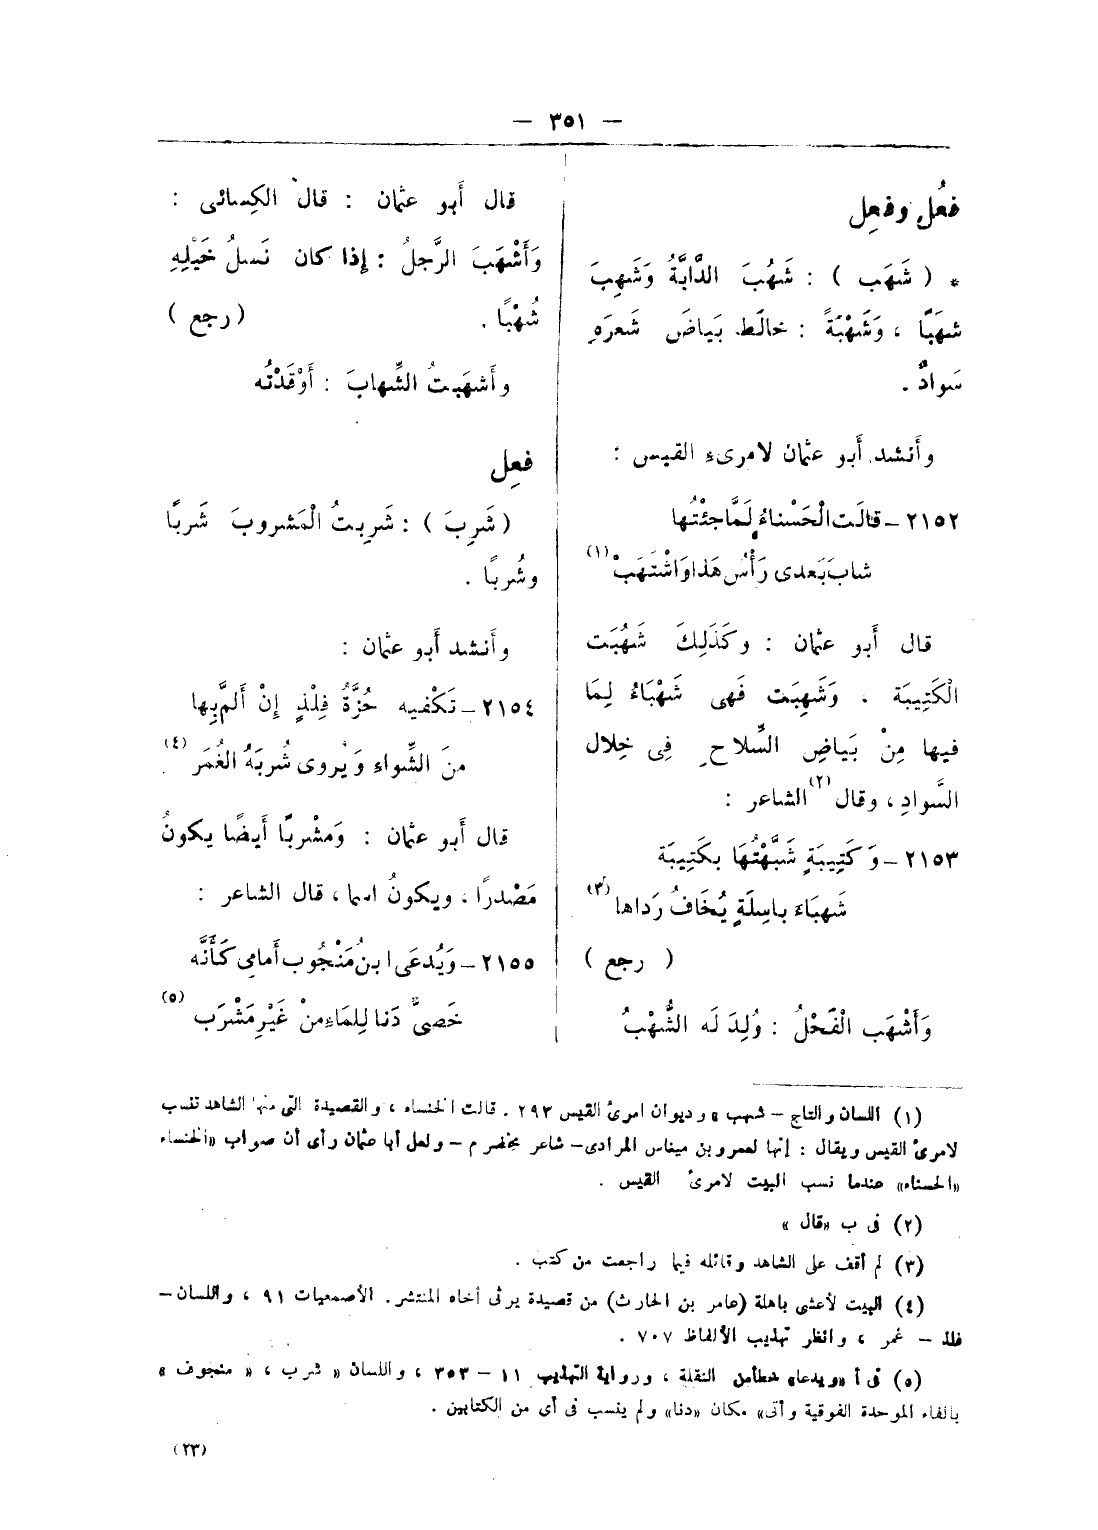 — ٣٥١ —
فعُل وفعِل
* ( شَهَب ) : شَهُبَ الدَّابَّةُ وَشَهِبَ
شهَبًا ، وَشُهْبَةً : خالَط بَياضَ شَعرَهِ
سَوادٌ .
وأَنشد أَبو عثمان لامرىءِ القيس :
٢١٥٢ – قالَت الْحَسْناءُ لَمَّا جئْتُها
شابَ بَعدى رَأْسُ هَذا وَاشْتَهَبْ (١)
قال أَبو عثمان : وكَذَلِكَ شَهُبَت
الْكَتِيبَة . وَشَهِبَت فَهى شَهْبَاءُ لِمَا
فيها مِنْ بَياضِ السِّلاحِ فِى خِلال
السَّوادِ ، وقال (٢) الشاعر :
٢١٥٣ – وَكَتِيبَةٍ شَبَّهْتُهَا بكَتِيبَة
شَهبَاءَ باسِلَةٍ يُخَافُ رَداها (٣)
( رجع )
وَأَشْهَب الْفَحْلُ : وُلِدَ لَه الشُّهْبُ
قال أَبو عثمان : قال الكِسائى :
وَأَشْهَبَ الرَّجلُ : إِذا كان نَسلُ خَيْلِهِ
شُهْبًا . ( رجع )
وأَشهَبتُ الشِّهابَ : أَوْقَدْتُه
فعِل
( شَرِبَ ) : شَرِبتُ الْمَشروبَ شَربًا
وشُربًا .
وأَنشد أَبو عثمان :
٢١٥٤ – تَكْفيه حُزَّةُ فِلْذٍ إِنْ أَلمَّ بِها
منَ الشِّواءِ وَيُروى شُربَهُ الْغُمَر (٤)
قال أَبو عثمان : وَمَشْربًا أَيضًا يكونُ
مَصْدرًا ، ويكونُ اسما ، قال الشاعر :
٢١٥٥ – وَيُدعَى ابنُ مَنْجُوب أَمامى كَأَنَّه
خَصىٌّ دَنا لِلمَاءِ منْ غَيْرِ مَشْرَب (٥)
(١) اللسان والتاج – شهب » وديوان امرئ القيس ٢٩٣ . قالت الخنساء ، والقصيدة التى منها الشاهد تنسب
لامرئ القيس ويقال : إنها لعمرو بن ميناس المرادى – شاعر مخضرم – ولعل أبا عثمان رأى أن صواب «الخنساء
«الحسناء» عندما نسب البيت لامرئ القيس .
(٢) فى ب «قال »
(٣) لم أقف على الشاهد وقائله فيما راجعت من كتب .
(٤) البيت لأعشى باهلة (عامر بن الحارث) من قصيدة يرثى أخاه المنتشر. الأصمعيات ٩١ ، واللسان –
فلذ – غمر ، وانظر تهذيب الألفاظ ٧٠٧ .
(٥) فى أ «ويدعا» خطأ من النقلة ، ورواية التهذيب ١١ – ٣٥٣ ، واللسان « شرب ، « منجوف »
بالفاء الموحدة الفوقية وأتى» مكان «دنا» ولم ينسب فى أى من الكتابين .
(٢٣)